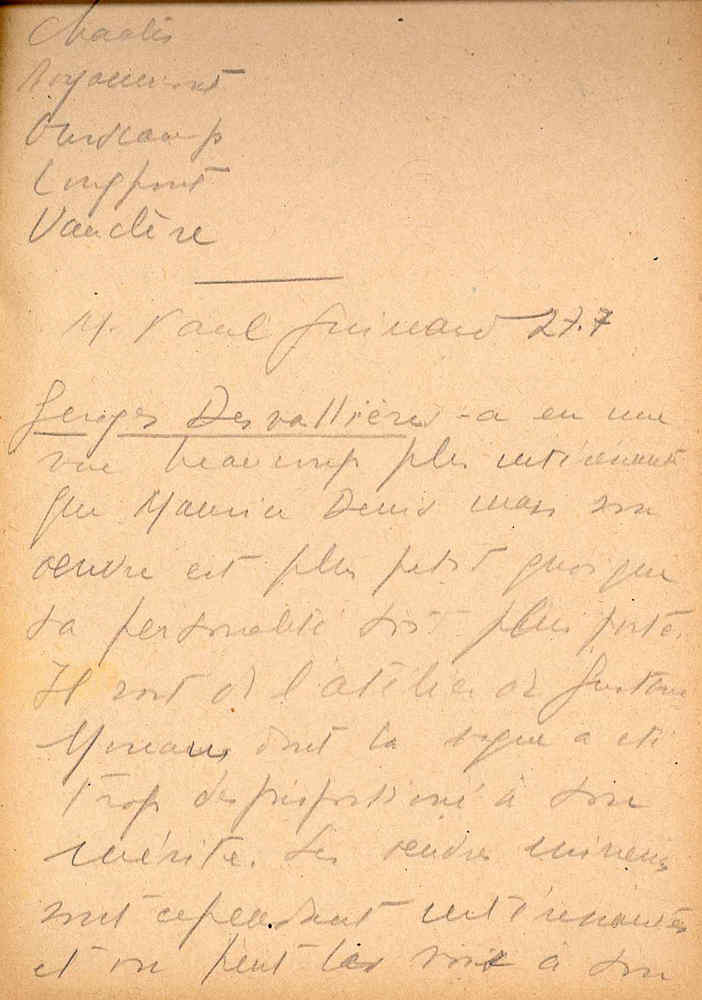 Chaalis
Royaumont
Ourscamp
Longpont
Vauclère
M. Paul Guinard 27.7
Georges Desvallières - a eu une
vie beaucoup plus intéressante
que Maurice Denis mais son
oeuvre est plus petit quoique
sa personalité soit plus forte.
Il sort de l'atelier de Gustave
Moreau dont la vogue a été
trop desproportioné à son
mérite. Les oeuvres
sont cependant intéressantes
et on peut les voir à son